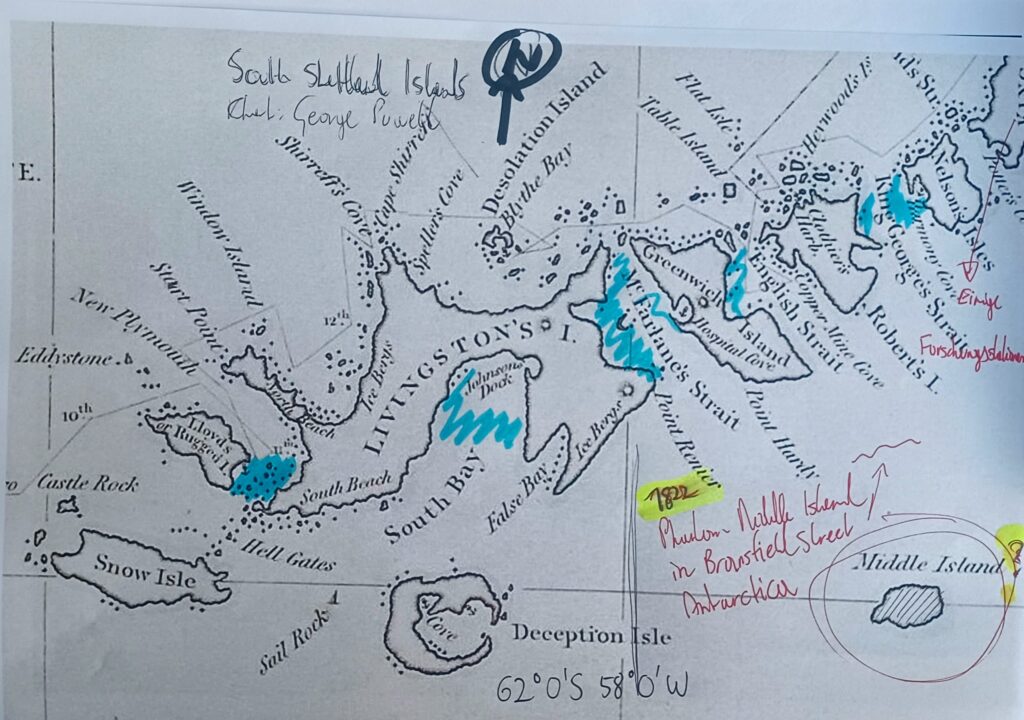 South Shetland Islands
Chart: George Powell
N
TE.
E.
Shirreff's Cove
Cape Shirreff
Speller's Cove
Desolation Island
Blythe Bay
Flat Isle
Table Island
Heywood's Is
d's Str
Window Island
Start Point
New Plymouth
Eddystone
10th
12th
11th
Castle Rock
Lloyd's
or Rugged I.
North Beach
Ice Bergs
LIVINGSTON'S I.
Johnson's
Dock
South Beach
South Bay
False Bay
Ice Bergs
Mc Farlane's Strait
Greenwich
Island
Hospital Cove
English Strait
Clothier's
Harb.
Copper Mine Cove
Roberts I.
King George's Strait
Harmony Cove
Nelson's
Isles
Potter's Co
Einige
Forschungsstationen
Point Renier
Point Hardy
Hell Gates
Snow Isle
Sail Rock
Cove
Deception Isle
1822
Phantom Middle Island
in Bransfield Street
Antarctica
Middle Island
62°0'S 58°0'W